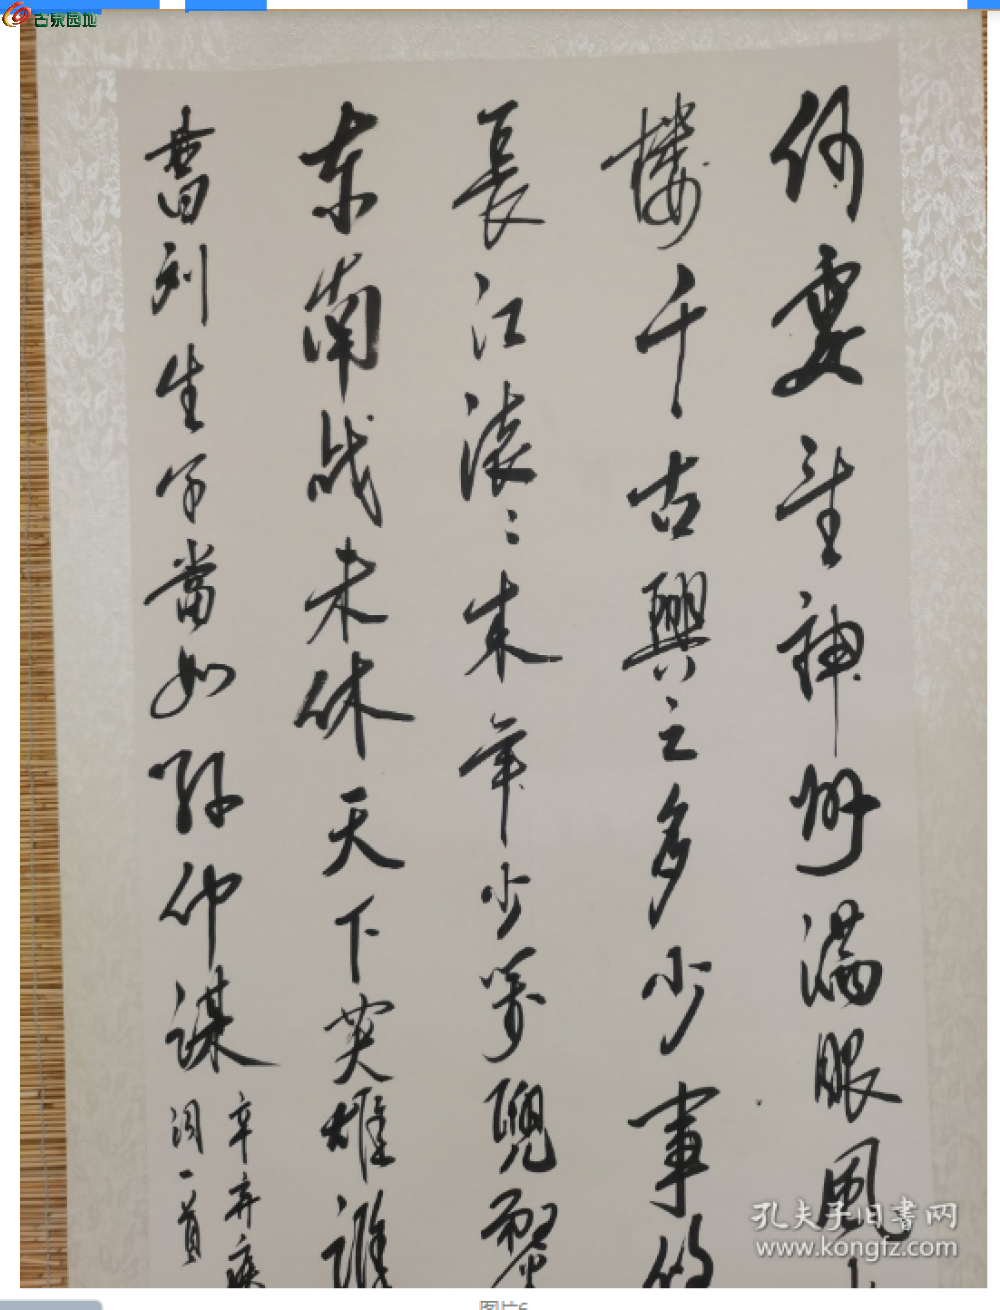 古泉园地
何處望神州满眼風
楼千古興亡多少事悠
長江滚々来年少萬兜鍪
东南战未休天下英雄谁
曹刘生子當如孙仲謀
辛弃疾
词一首
孔夫子旧书网
www.kongfz.com